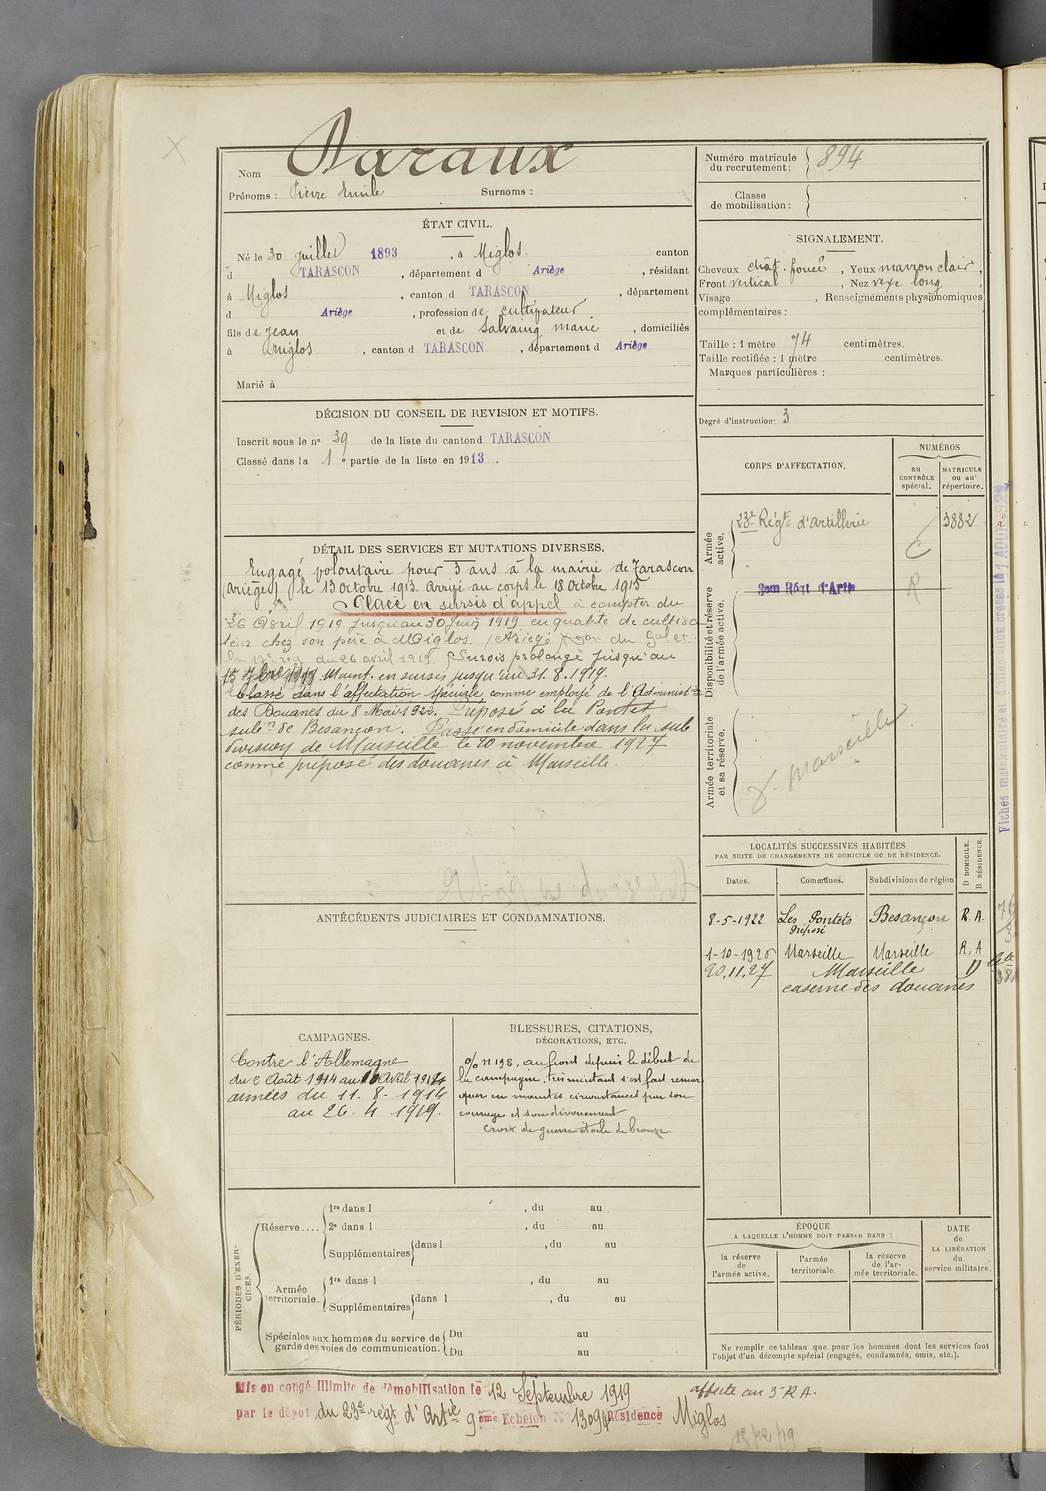 Nom Daraux
Prénoms : Pierre Emile Surnoms :
Numéro matricule du recrutement : 894
Classe de mobilisation :
ÉTAT CIVIL.
Né le 30 juillet 1893, à Miglos. canton
d TARASCON, département d Ariège, résidant
à Miglos, canton d TARASCON, département
d Ariège, profession de cultivateur
fils de Jean et de Salvaing marie, domiciliés
à Miglos, canton d TARASCON, département d Ariège
Marié à
SIGNALEMENT.
Cheveux chât. foncé, Yeux marron clair,
Front vertical, Nez vexe long,
Visage , Renseignements physionomiques
complémentaires :
Taille : 1 mètre 74 centimètres.
Taille rectifiée : 1 mètre centimètres.
Marques particulières :
Degré d'instruction : 3
DÉCISION DU CONSEIL DE REVISION ET MOTIFS.
Inscrit sous le n° 39 de la liste du canton d TARASCON
Classé dans la 1e partie de la liste en 1913.
DÉTAIL DES SERVICES ET MUTATIONS DIVERSES.
Engagé volontaire pour 3 ans à la mairie de Tarascon
(Ariège) le 13 Octobre 1913. Arrivé au corps le 18 Octobre 1913
Placé en sursis d'appel à compter du
26 Avril 1919 jusqu'au 30 Juin 1919 en qualité de cultiva
teur chez son père à Miglos. (Ariège)
du 26 avril 1919. Sursis prolongé jusqu'au
Maint. en sursis jusqu'au 31.8.1919.
Classé dans l'affectation spéciale comme employé de l'Administ.on
des Douanes du 8 Mai 1922. Préposé à les Pontets
subdon de Besançon. Passé en domicile dans la sub
division de Marseille le 20 novembre 1927
comme préposé des douanes à Marseille.
CORPS D'AFFECTATION.
NUMÉROS
au CONTRÔLE spécial.
MATRICULE ou au répertoire.
Armée active.
23e Régt d'Artillerie
3882
C
Disponibilité et réserve de l'armée active.
3em Régt d'Artie
R
Armée territoriale et sa réserve.
Marseille
LOCALITÉS SUCCESSIVES HABITÉES
PAR SUITE DE CHANGEMENTS DE DOMICILE OU DE RÉSIDENCE.
Dates. Communes. Subdivisions de région D DOMICILE. R RÉSIDENCE.
8-5-1922 Les Pontets Besançon R.A.
préposé
1-10-1926 Marseille Marseille R,A
20.11.27 Marseille D
caserne des douanes
ANTÉCÉDENTS JUDICIAIRES ET CONDAMNATIONS.
CAMPAGNES.
Contre l'Allemagne
du 2 Août 1914 au
armées du 11.8.1914
au 26.4.1919.
BLESSURES, CITATIONS,
DÉCORATIONS, ETC.
O/ n 198, au front depuis le début de
la campagne, très méritant s'est fait remar
quer en maintes circonstances par son
courage et son dévouement
croix de guerre étoile de bronze
PÉRIODES D'EXERCICES.
Réserve....
1re dans l , du au
2e dans l , du au
Supplémentaires dans l , du au
Armée territoriale.
1re dans l , du au
Supplémentaires dans l , du au
Spéciales aux hommes du service de garde des voies de communication.
Du au
Du au
ÉPOQUE
A LAQUELLE L'HOMME DOIT PASSER DANS :
la réserve de l'armée active.
l'armée territoriale.
la réserve de l'armée territoriale.
DATE de LA LIBÉRATION du service militaire.
Ne remplir ce tableau que pour les hommes dont les services font
l'objet d'un décompte spécial (engagés, condamnés, omis, etc.).
Mis en congé illimité de démobilisation le 12 Septembre 1919
par le dépôt du 23e régt d'Artie 9eme Echelon N° 13094 Résidence Miglos
affecté au 3e R.A.